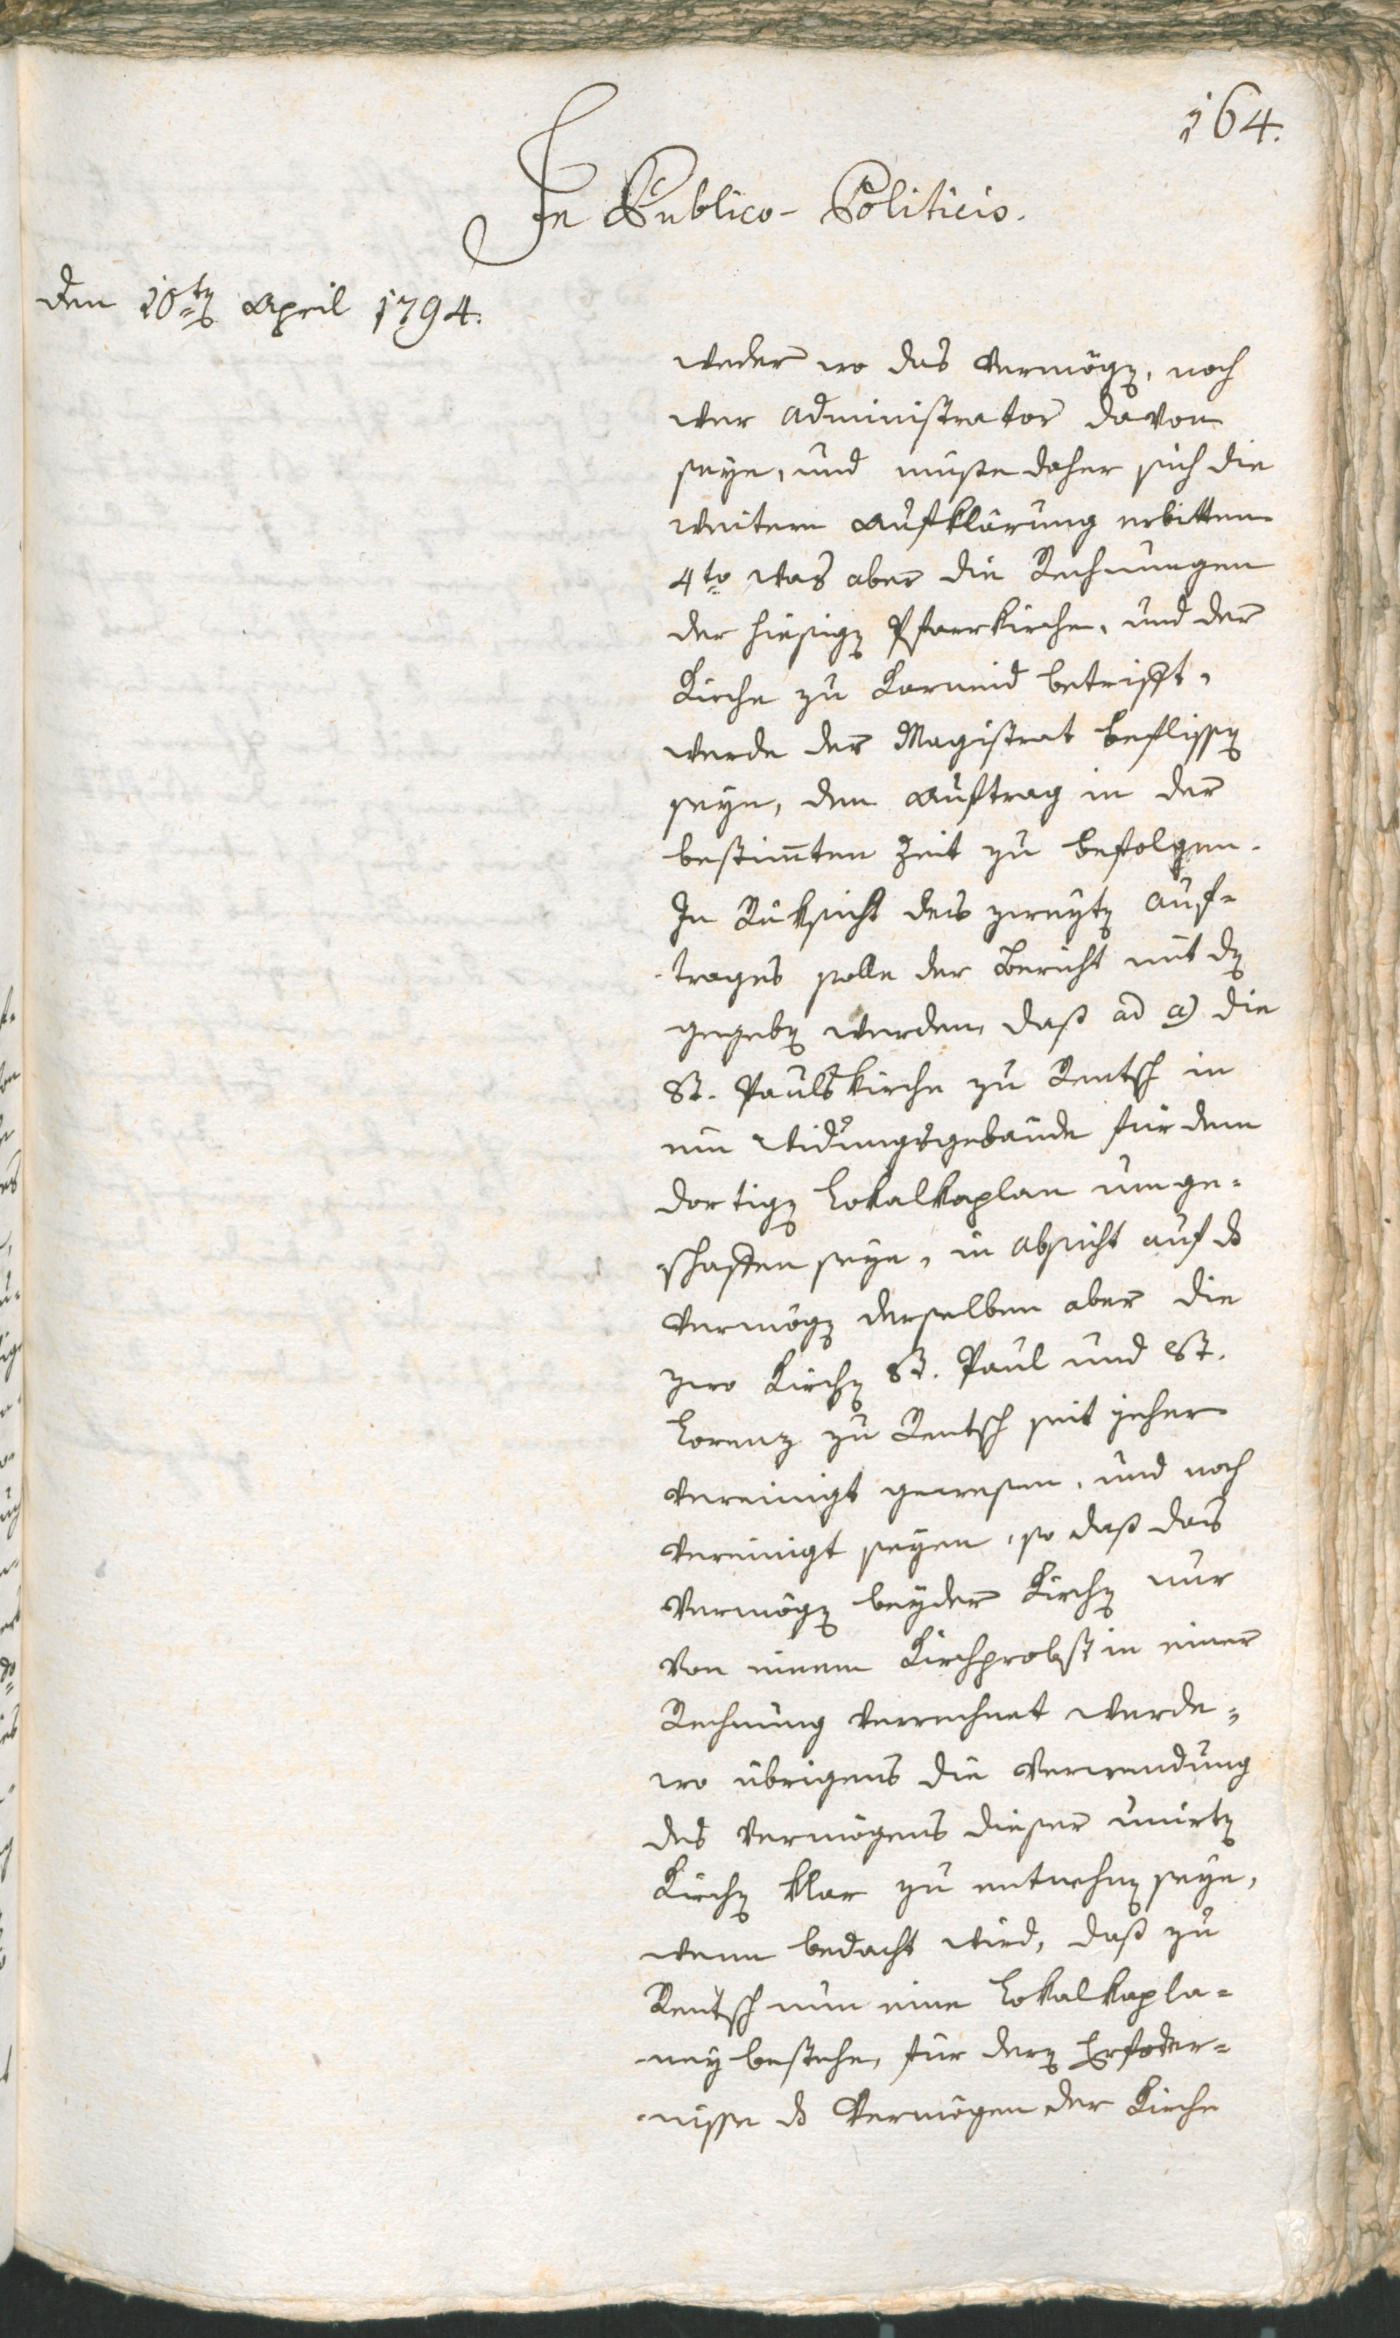 164.
In Publico-Politicis.
den 10ten April 1794.
weder wo das Vermögen, noch
wer Administrator davon
seye, und müsse daher sich die
weitere Aufklärung erbitten
4to Was aber die Rechnungen
der hiesigen Pfarrkirche, und der
Kirche zu Karneid betrifft,
werde der Magistrat beflissen
seyn, dem Auftrag in der
bestim̄ten Zeit zu befolgen.
In Rüksicht des zweyten Auf=
trages solle der Bericht mit dem
gegeben werden, daß ad a) die
St. Paulskirche zu Rentsch in
ein Widumsgebäude für dem
dortigen Lokalkaplan umge=
schaffen seye, in Absicht auf ds
Vermögen derselben aber die
zwo Kirchen St. Paul und St.
Lorenz zu Rentsch seit jeher
vereinigt gewesen, und noch
vereinigt seyen, so daß das
Vermögen beyder Kirchen nur
von einem Kirchprobst in einer
Rechnung verrechnet werde,
wo übrigens die Verwendung
des Vermögens dieser unirten
Kirchen klar zu entnehmen seye,
wenn bedacht wird, daß zu
Rentsch nun eine Lokalkapla=
ney bestehe, für deren Erforder=
nisse ds Vermögen der Kirche